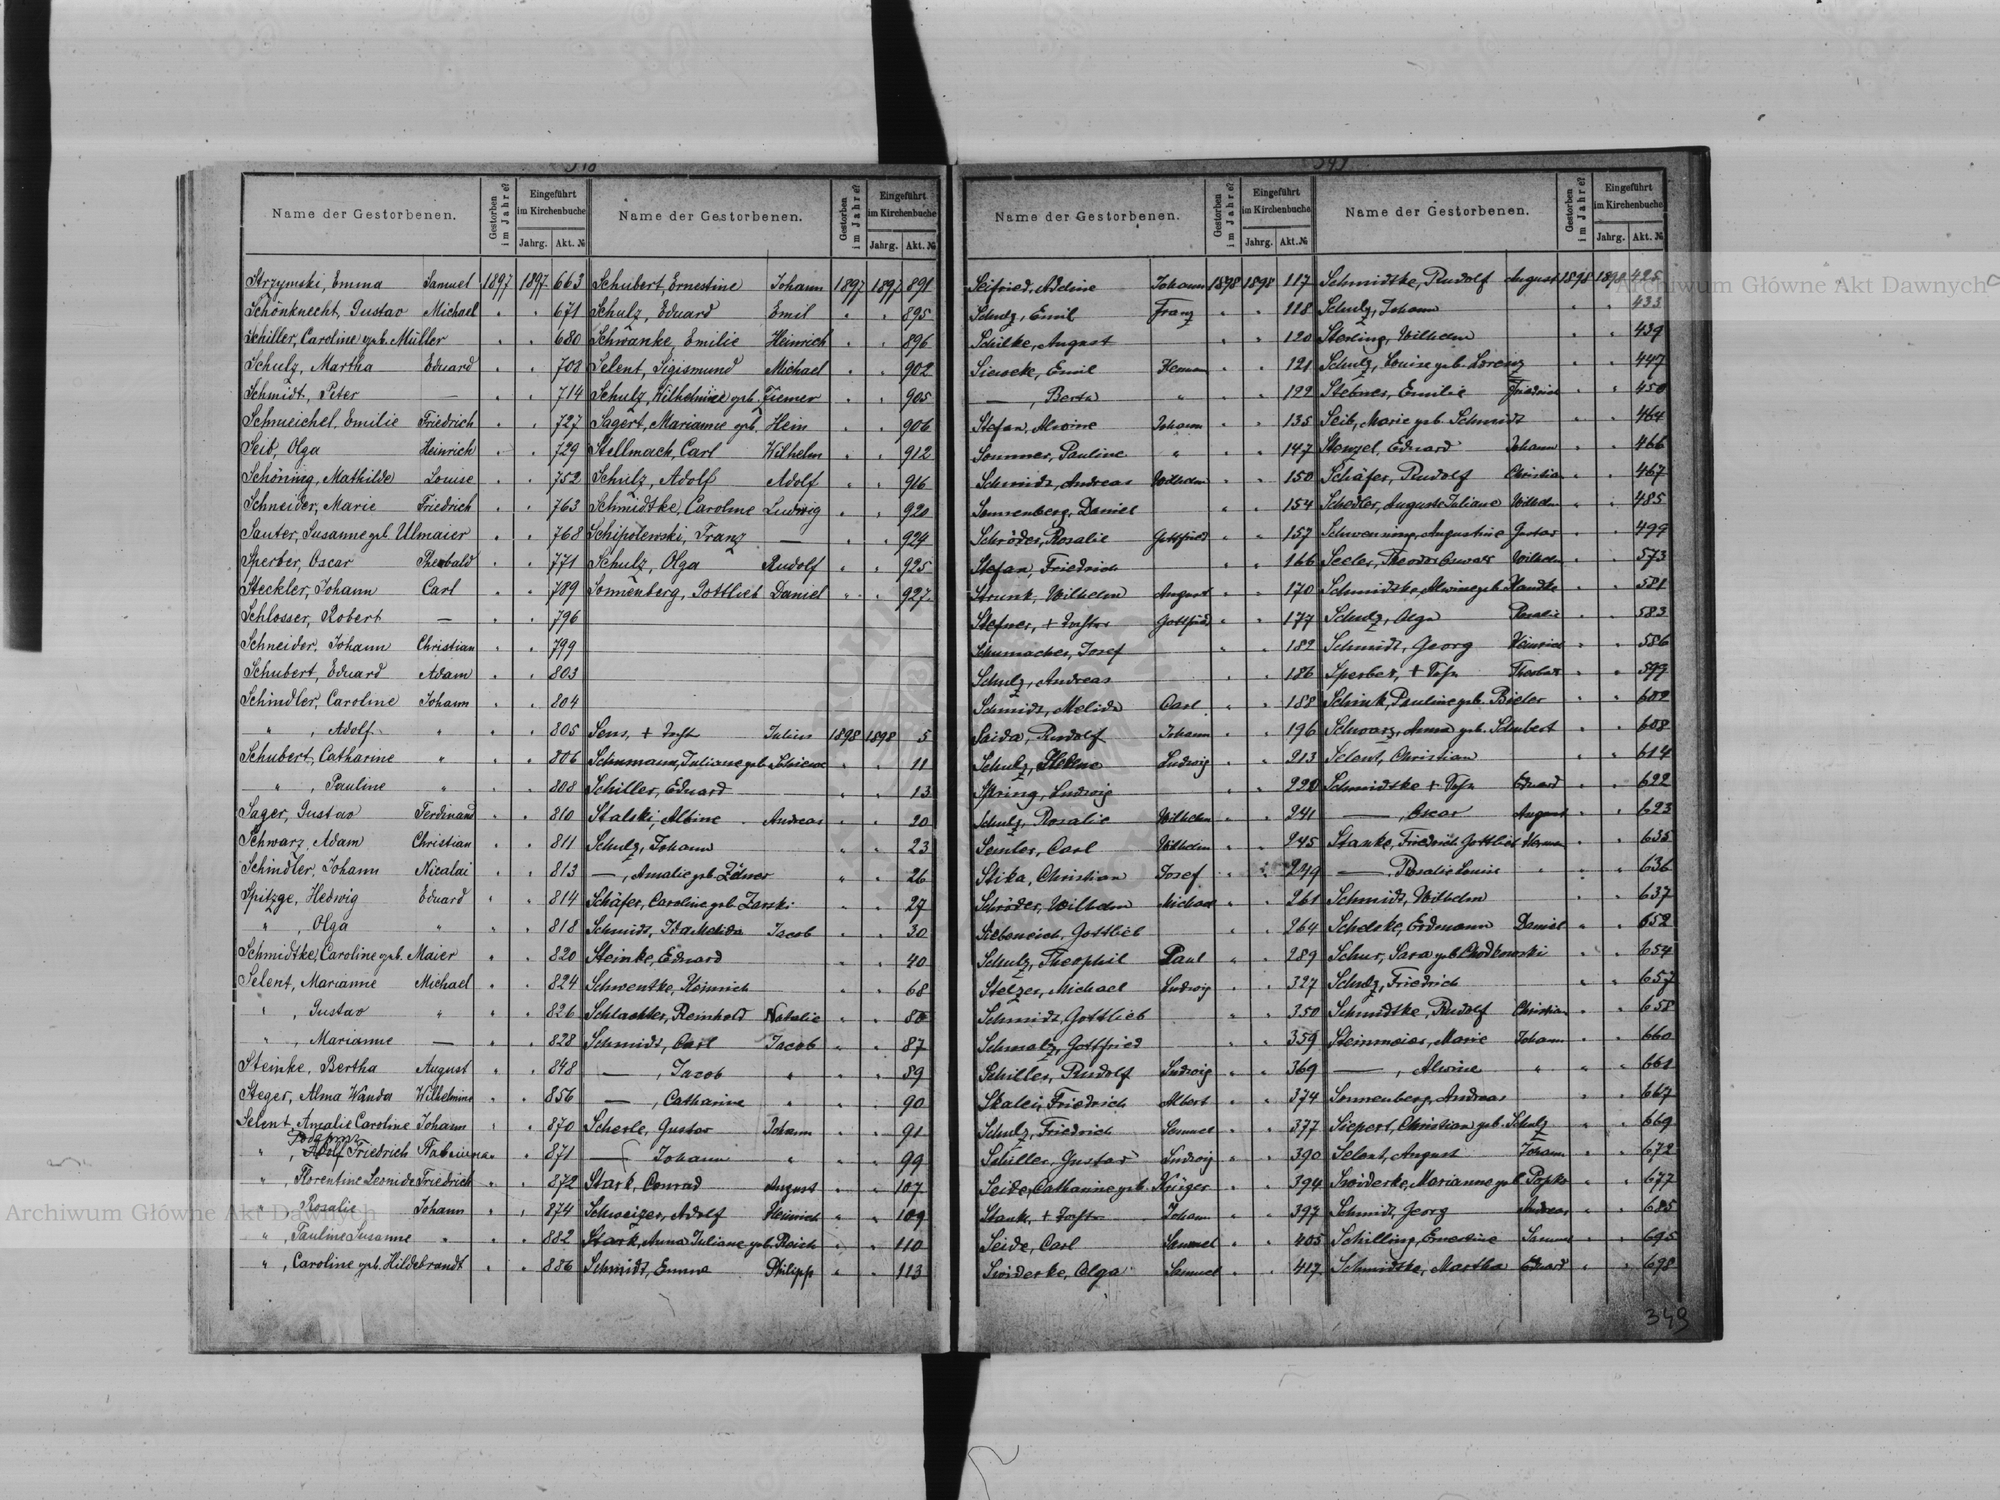 Name der Gestorbenen. Gestorben im Jahre? Eingeführt im Kirchenbuche Jahrg. Akt. №
Strzymski, Emma Samuel 1897 1897 663
Schönknecht, Gustav Michael " " 671
Schiller, Caroline geb. Müller " " 680
Schulz, Martha Eduard " " 708
Schmidt, Peter — " " 714
Schmeichel, Emilie Friedrich " " 727
Seib, Olga Heinrich " " 729
Schöning, Mathilde Louise " " 752
Schneider, Marie Friedrich " " 763
Sauter, Susanne geb. Ulmaier " " 768
Sperber, Oscar " " 771
Steckler, Johann Carl " " 789
Schlosser, Robert — " " 796
Schneider, Johann Christian " " 799
Schubert, Eduard Adam " " 803
Schindler, Caroline Johann " " 804
" , Adolf " " " 805
Schubert, Catharine " " " 806
" , Pauline " " " 808
Sager, Gustav Ferdinand " " 810
Schwarz, Adam Christian " " 811
Schindler, Johann Nicolai " " 813
Spitzge, Hedwig Eduard " " 814
" , Olga " " " 818
Schmidtke, Caroline geb. Maier " " 820
Selent, Marianne Michael " " 824
" , Gustav " " " 826
" , Marianne — " " 828
Steinke, Bertha August " " 848
Steger, Alma Wanda Wilhelmine " " 856
Selent, Amalie Caroline Johann " " 870
" , Friedrich " " 871
" , Florentine Leonide Friedrich " " 872
" , Rosalie Johann " " 874
" , Pauline Susanne " " " 882
" , Caroline geb. Hildebrandt " " 886
Name der Gestorbenen. Gestorben im Jahre? Eingeführt im Kirchenbuche Jahrg. Akt. №
Schubert, Ernestine Johann 1897 1897 891
Schulz, Eduard Emil " " 895
Schwanke, Emilie Heinrich " " 896
Selent, Sigismund Michael " " 902
Schulz, Wilhelmine geb. Ziemer " " 905
Sagert, Marianne geb. Hein " " 906
Stellmach, Carl Wilhelm " " 912
Schulz, Adolf Adolf " " 916
Schmidtke, Caroline Ludwig " " 920
Schipolewski, Franz — " " 924
Schulz, Olga Rudolf " " 925
Sonnenberg, Gottlieb Daniel " " 927
Sens, + Tocht Julius 1898 1898 5
Schumann, Juliane geb. " " 11
Schiller, Eduard " " 13
Stalski, Albine Andreas " " 20
Schulz, Johann " " 23
—, Amalie geb. " " 26
Schäfer, Caroline geb. Zarski " " 27
Schmidt, Ida Jacob " " 30
Steinke, Eduard " " 40
Schwentke, Heinrich " " 68
Schlachter, Reinhold Natalie " " 80
Schmidt, Carl Jacob " " 87
— , Jacob " " " 89
— , Catharine " " " 90
Scherle, Gustav Johann " " 91
— Johann " " " 99
Stark, Conrad August " " 107
Schweizer, Adolf Heinrich " " 109
Stark, Anna Juliane geb. Reich " " 110
Schmidt, Emma Philipp " " 113
Name der Gestorbenen. Gestorben im Jahre? Eingeführt im Kirchenbuche Jahrg. Akt. №
Seifried, Adeline Johann 1898 1898 117
Schulz, Emil Franz " " 118
Schilke, August " " 120
Emil " " 121
— , Berta " " " 122
Stefan, Alwine Johann " " 135
Sommer, Pauline " " " 147
Schmidt, Andreas Wilhelm " " 150
Sonnenberg, Daniel " " 154
Schröder, Rosalie Gottfried " " 157
Stefan, Friedrich " " 166
Strunk, Wilhelm August " " 170
Stefner, + Tochter Gottfried " " 177
Schumacher, Josef " " 182
Schulz, Andreas " " 186
Schmidt, Melida Carl " " 188
Saida, Rudolf Johann " " 196
Schulz, Helene Ludwig " " 213
Spring, Ludwig " " 220
Schulz, Rosalie Wilhelm " " 241
Semler, Carl Wilhelm " " 245
Stika, Christian Josef " " 249
Schröder, Wilhelm Michael " " 261
Siebeneich, Gottlieb " " 264
Schulz, Theophil Paul " " 289
Stelzer, Michael Ludwig " " 327
Schmidt, Gottlieb " " 350
Schmalz, Gottfried " " 359
Schiller, Rudolf Ludwig " " 369
Skalei, Friedrich Albert " " 374
Schulz, Friedrich Samuel " " 377
Schiller, Gustav Ludwig " " 390
Seide, Catharine geb. Krüger " " 394
Stank, + Tochter Johann " " 397
Seide, Carl Samuel " " 405
Swiderke, Olga Samuel " " 417
Name der Gestorbenen. Gestorben im Jahre? Eingeführt im Kirchenbuche Jahrg. Akt. №
Schmidtke, Rudolf August 1898 1898 425
Schulz, Johann " " 433
Sterling, Wilhelm " " 439
Schulz, Louise geb. Lorenz " " 447
Stebner, Emilie Friedrich " " 450
Seib, Marie geb. Schmidt " " 464
Stenzel, Eduard Johann " " 466
Schäfer, Rudolf Christian " " 467
Schedler, Auguste Juliane Wilhelm " " 485
Augustine Gustav " " 499
Seeler, Theodor Wilhelm " " 573
Schmidtke, Alwine geb. " " 581
Schulz, Olga Rosalie " " 583
Schmidt, Georg Heinrich " " 586
Sperber, + Sohn " " 599
Schink, Pauline geb. Bieler " " 602
Schwarz, Anna geb. Schubert " " 608
Selent, Christian " " 614
Schmidtke + Sohn Eduard " " 622
— , Oscar August " " 623
Stanke, Friedrich Gottlieb Herman " " 635
— , Rosalie Louise " " " 636
Schmidt, Wilhelm " " 637
Schelske, Erdmann Daniel " " 652
Schur, Sara geb. Chodkowski " " 654
Schulz, Friedrich " " 657
Schmidtke, Rudolf Christian " " 658
Steinmeier, Marie Johann " " 660
— , Alwine " " " 661
Sonnenberg, Andreas " " 667
Siepert, Christiane geb. Schulz " " 669
Selent, August Johann " " 672
Swiderke, Marianne geb. Popke " " 677
Schmidt, Georg Andreas " " 685
Schilling, Ernestine Samuel " " 695
Schmidtke, Martha Eduard " " 698
349
Archiwum Główne Akt Dawnych
Archiwum Główne Akt Dawnych